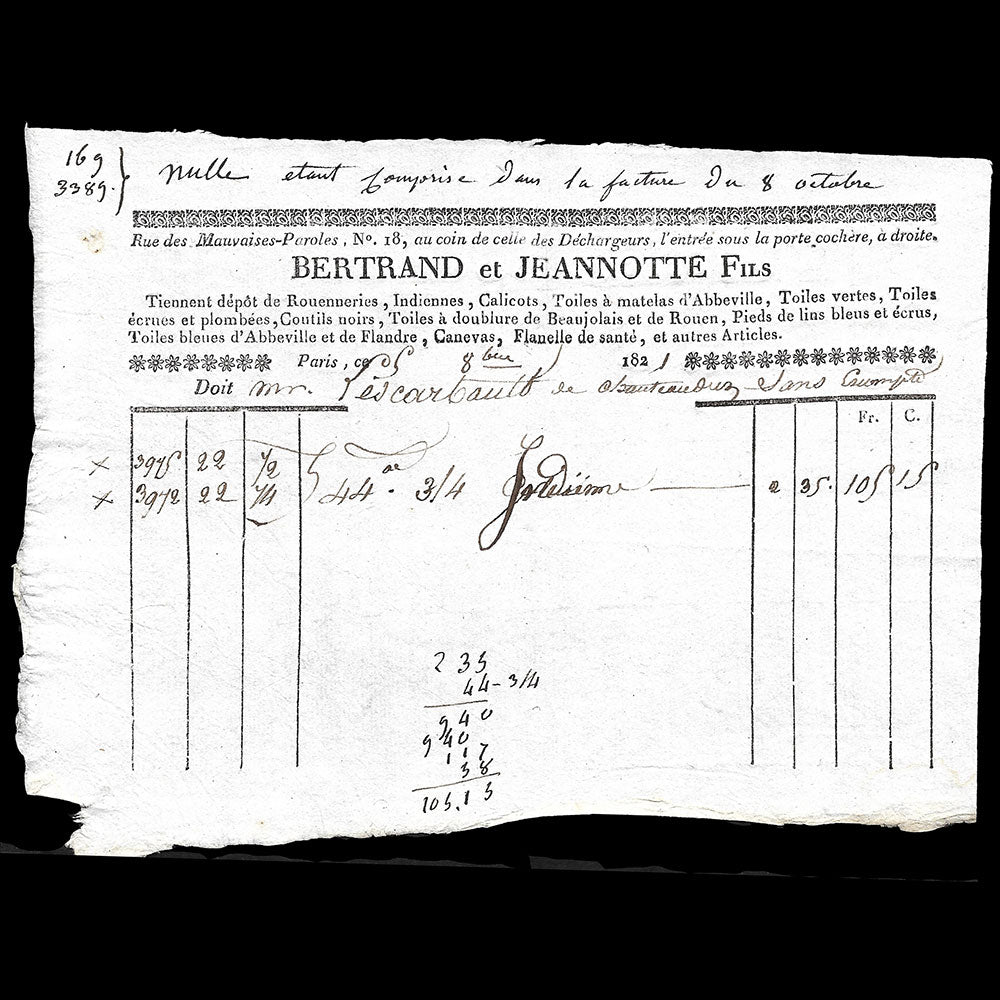 169
3389. } nulle etant Comprise dans la facture du 8 octobre
Rue des Mauvaises-Paroles, No. 18, au coin de celle des Déchargeurs, l'entrée sous la porte cochère, à droite.
BERTRAND et JEANNOTTE FILS
Tiennent dépôt de Rouenneries, Indiennes, Calicots, Toiles à matelas d'Abbeville, Toiles vertes, Toiles
écrues et plombées, Coutils noirs, Toiles à doublure de Beaujolais et de Rouen, Pieds de lins bleus et écrus,
Toiles bleues d'Abbeville et de Flandre, Canevas, Flanelle de santé, et autres Articles.
Paris, ce 8bre 1821
Doit mr. Lescarbault de Chauteaudun Sans Escompte
Fr. C.
x 3975 22 1/2
x 3972 22 1/4 } 44 ae. 3/4 Indienne 2 35. 105 15
2 35
44-3/4
940
940
117
58
105.15